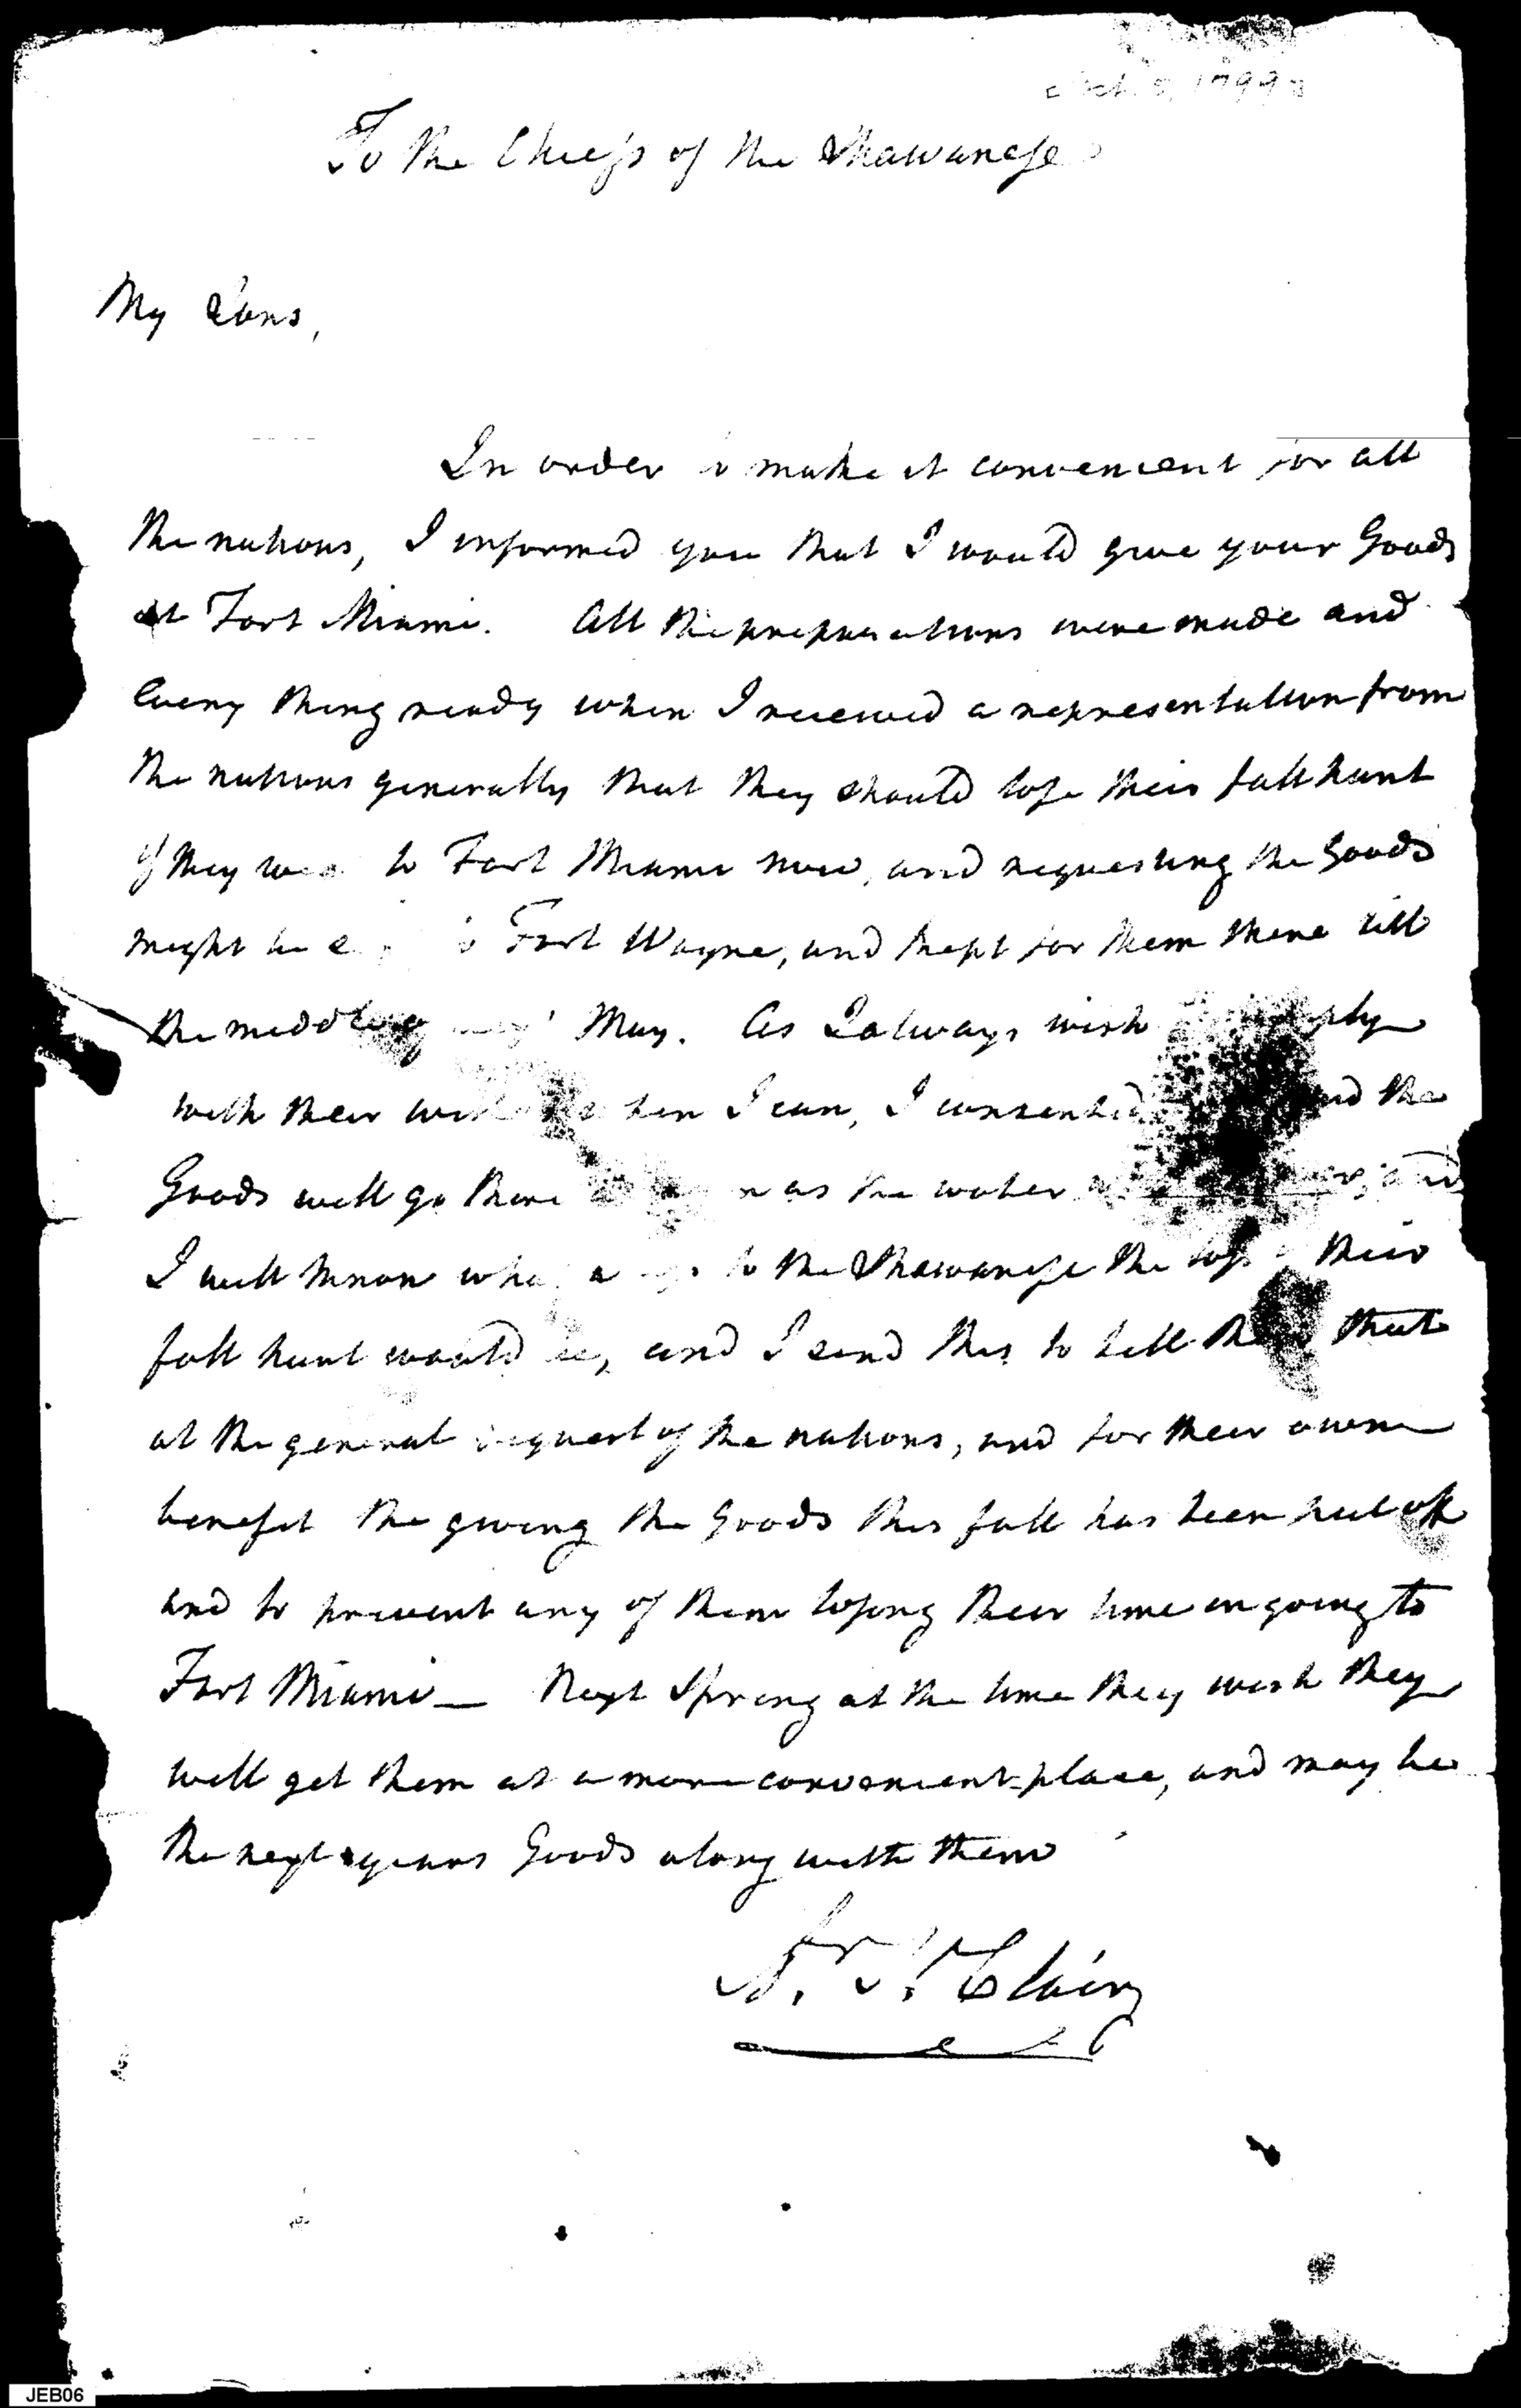 To the Chiefs of the Shawanese
My Sons,
In order to make it convenient for all
the nations, I informed you that I would give your Goods
at Fort Miami. All the preparations were made and
every thing ready when I received a representation from
the nations generally that they should lose their fall hunt
if they to Fort Miami now, and requesting the Goods
might be to Fort Wayne, and kept for them there till
the middle of May. As I always wish
with their when I can, I consented and the
Goods will go there as as the water and
I will know to the Shawanese the loss their
fall hunt would be, and I send this to tell them that
at the general request of the nations, and for their own
benefit the giving the Goods this fall has been put off
and to prevent any of them losing their time in going to
Fort Miami — Next Spring at the time they wish they
will get them at a more convenient place, and may be
the next years Goods along with them
Ar. St. Clair
JEB06